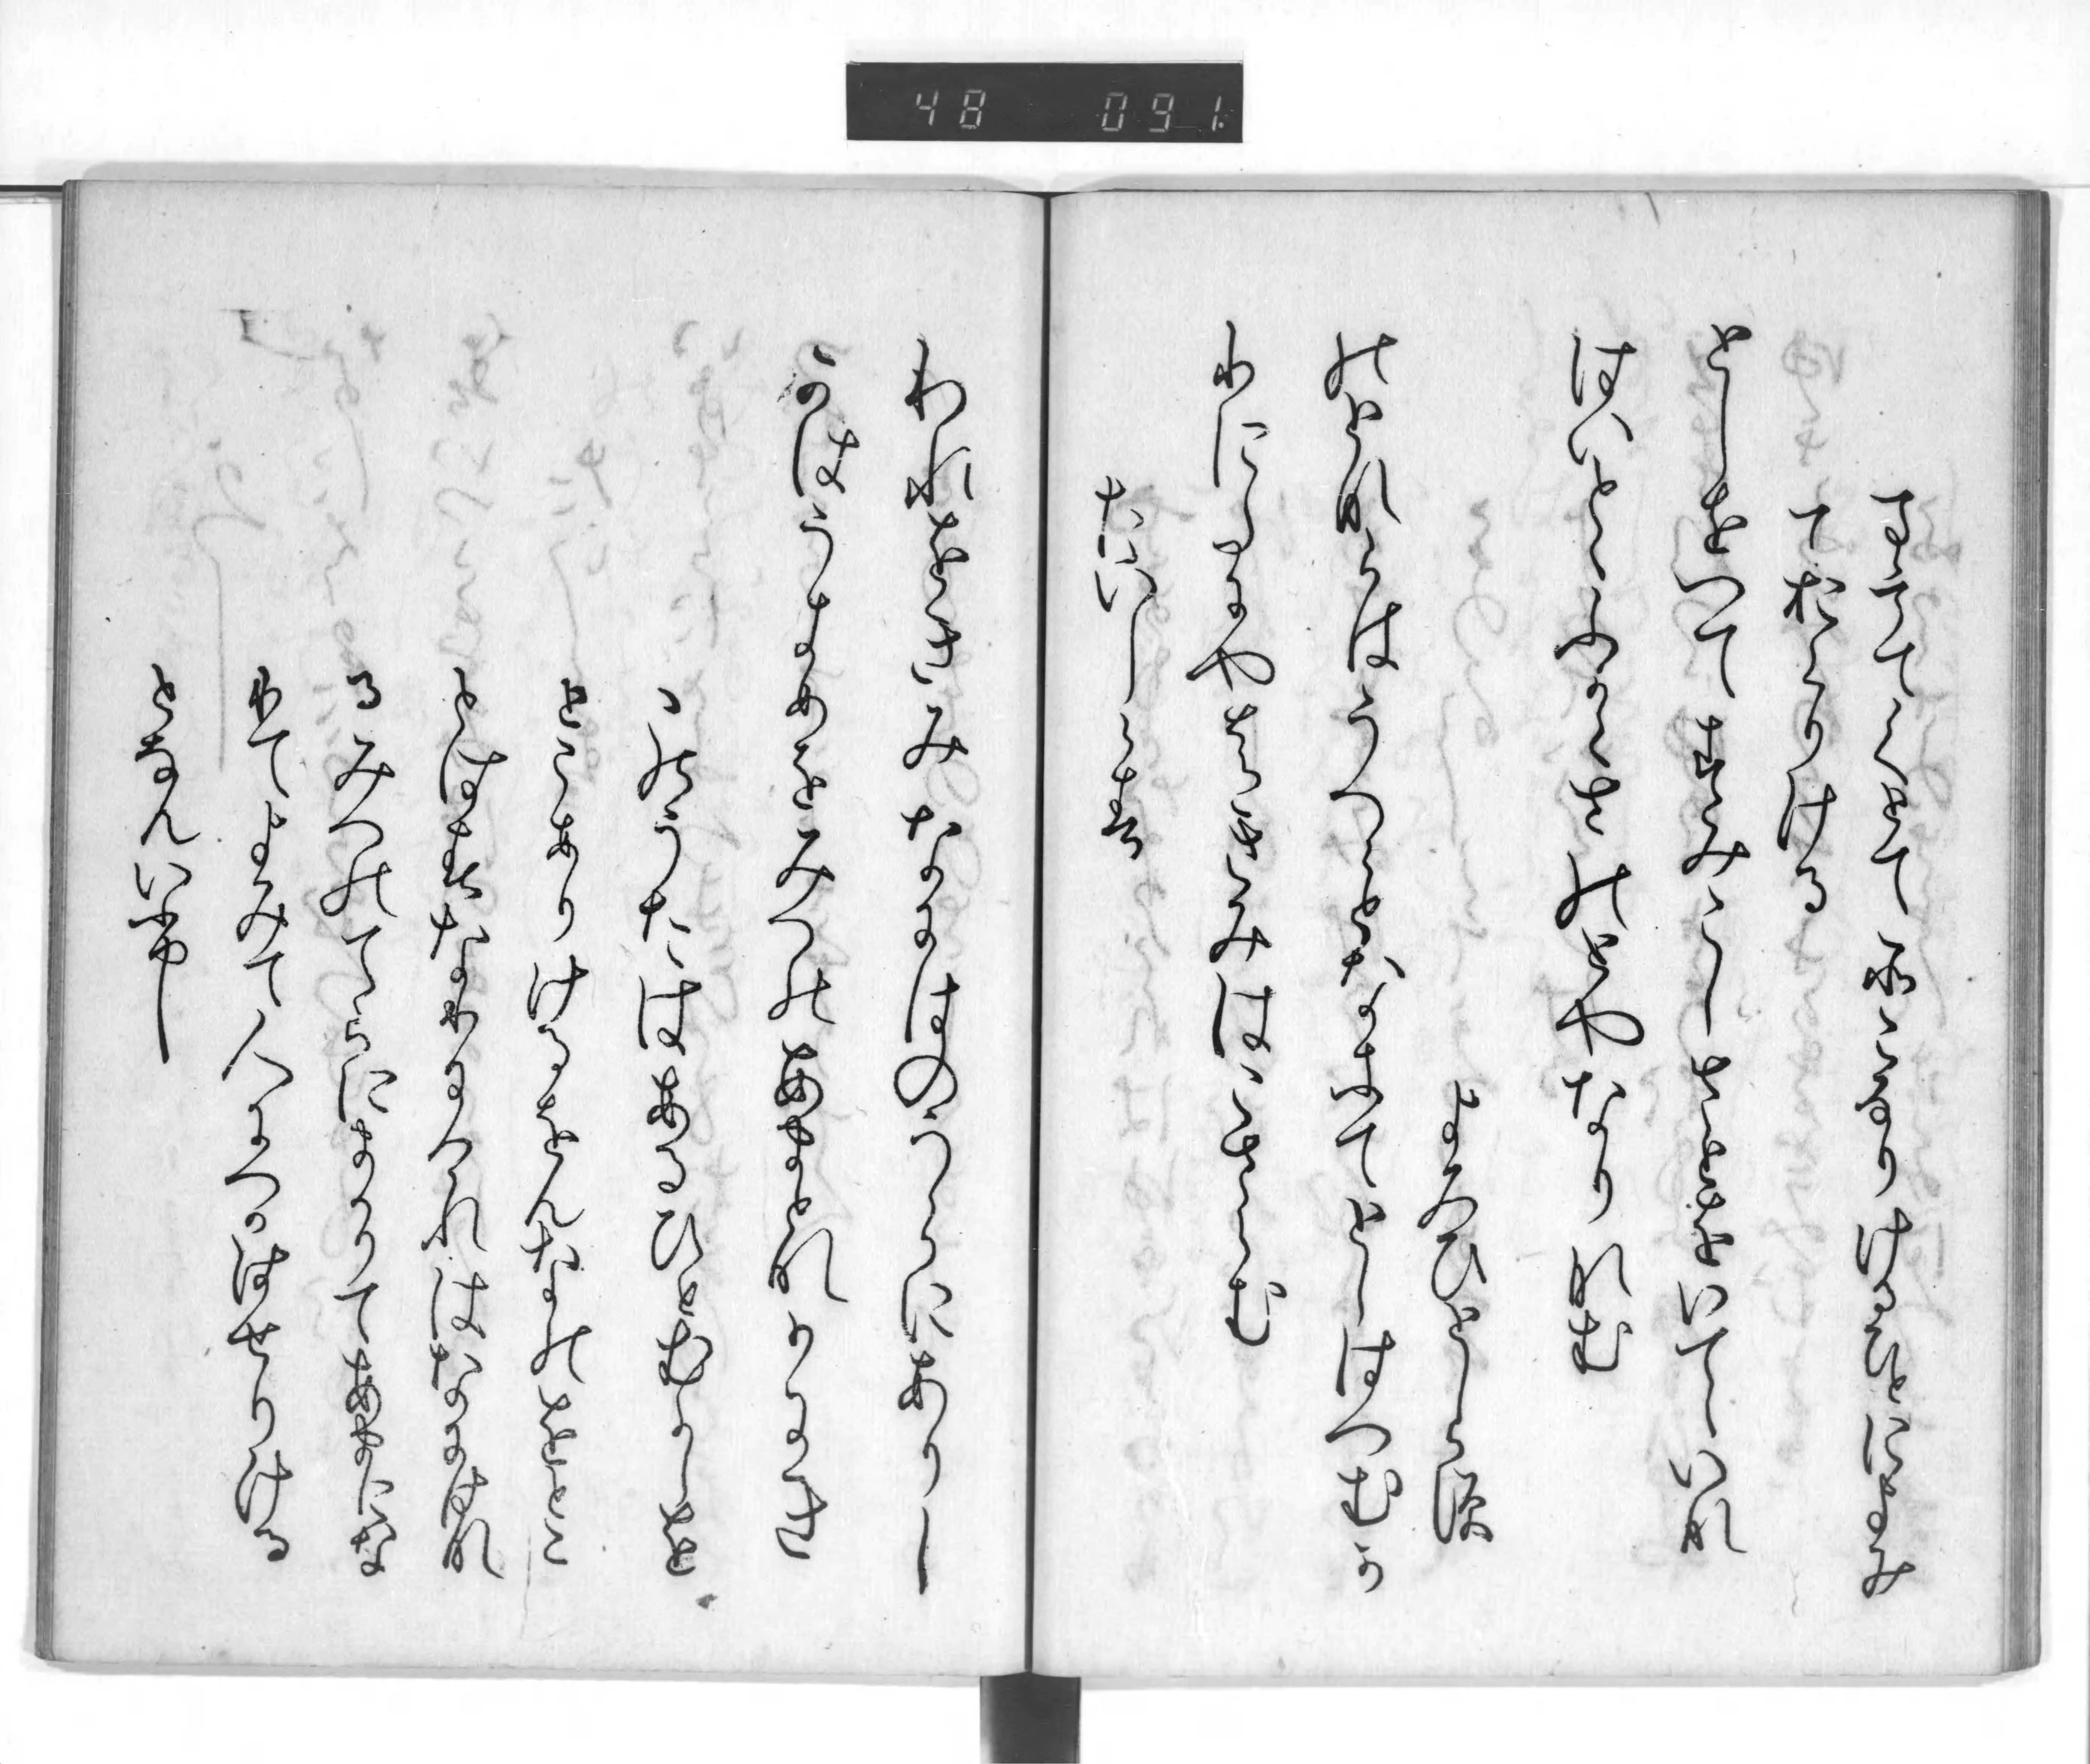 まうてくとてそこなりけるひとによみ
ておくりける
としをへてすみこしさとをいてゝいな
はいとゝふかくさのとやなりなむ
よみひとしらす
のとならはうつらとなきてとしはへむか
りにたにやはきみはこさらむ
たいしらす
われをきみなにはのうらにありし
かはうきめをみつのあまとなりにき
このうたはあるひとむかしを
とこありけるをんなのをとこ
とはすなりにけれはなにはな
るみつのてらにまかりてあまにな
りてよみて人につかはせりける
となんいふ
48 091